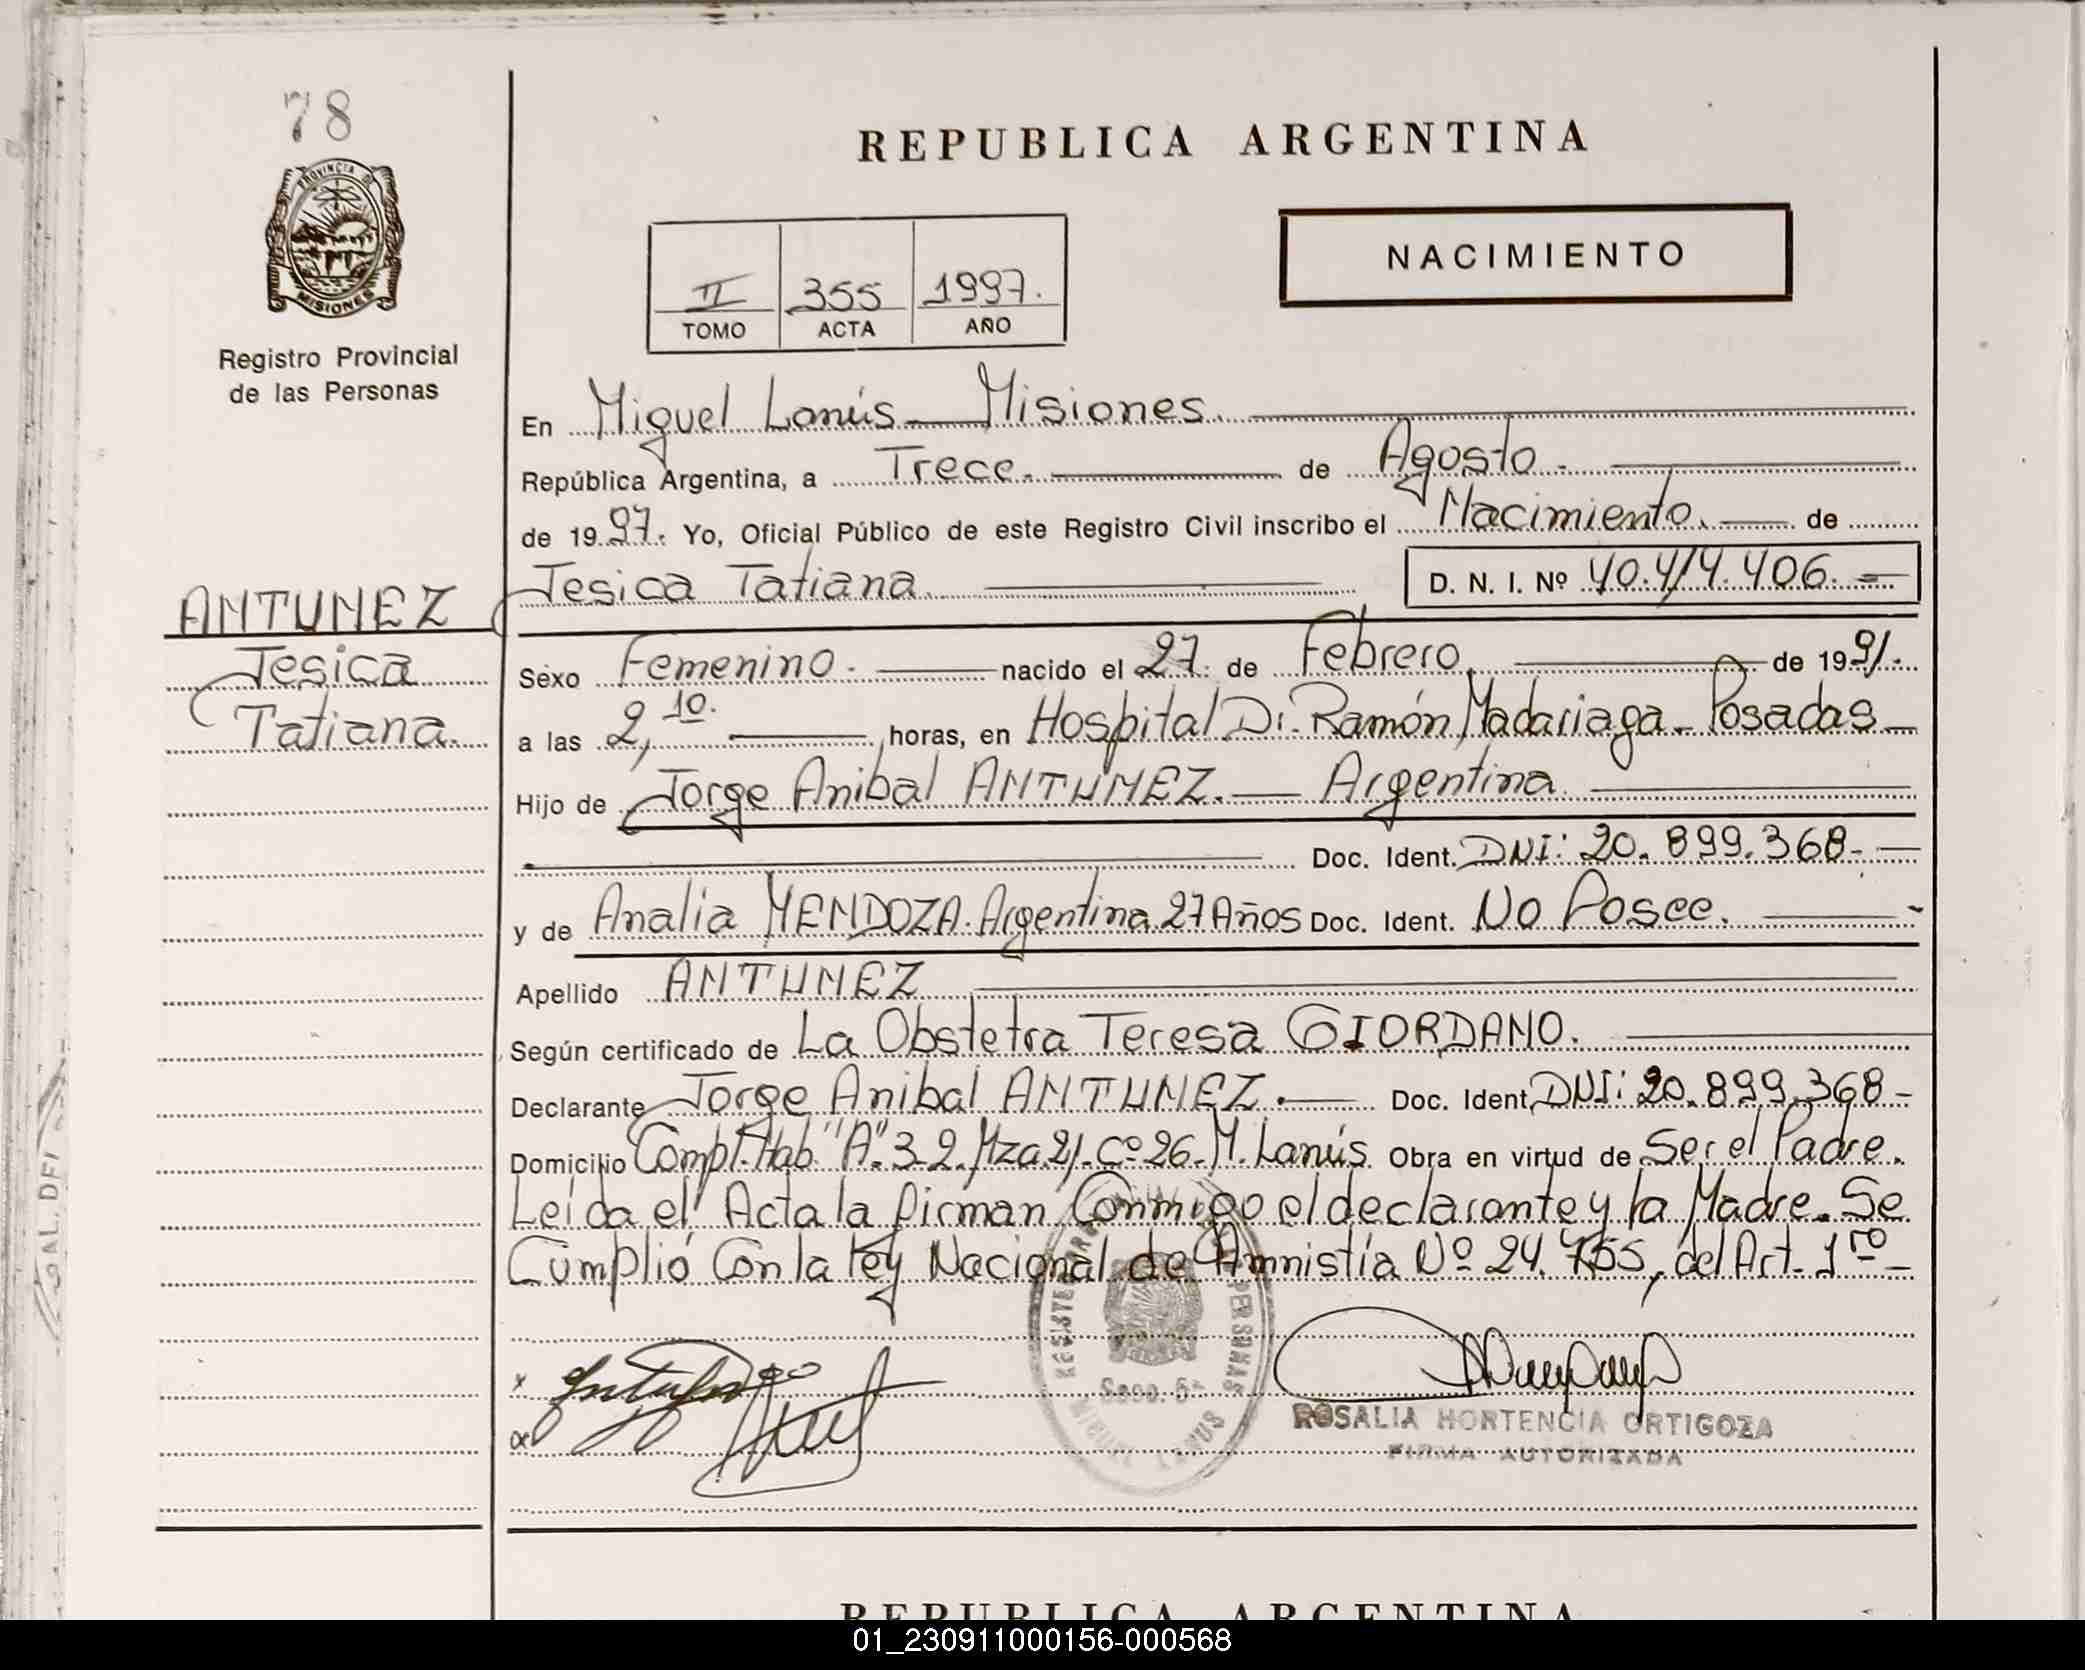 78
REPUBLICA ARGENTINA
PROVINCIA DE
MISIONES
NACIMIENTO
II 355 1997.
TOMO ACTA AÑO
Registro Provincial
de las Personas
En Miguel Lanús - Misiones.
República Argentina, a Trece. de Agosto.
de 1997. Yo, Oficial Público de este Registro Civil inscribo el Nacimiento. de
Jesica Tatiana. D. N. I. Nº 40.414.406.
ANTUNEZ
Jesica
Tatiana.
Sexo Femenino. nacido el 27. de Febrero. de 1991.
a las 2,10. horas, en Hospital Dr. Ramón Madariaga - Posadas
Hijo de Jorge Anibal ANTUNEZ. Argentina
Doc. Ident. DNI: 20.899.368-
y de Analia MENDOZA. Argentina 27 Años Doc. Ident. No Posee.
Apellido ANTUNEZ
Según certificado de La Obstetra Teresa GIORDANO.
Declarante Jorge Anibal ANTUNEZ. Doc. Ident. DNI: 20.899.368-
Domicilio Compl. Hab. "A". 3-2. Mza 21. Cº 26. M. Lanús. Obra en virtud de Ser el Padre.
Leída el Acta la firman Conmigo el declarante y la Madre. Se
Cumplió Con la ley Nacional de Amnistía Nº 24.755, del Art. 1ro
REGISTRO PERSONAS
Secc. 6ª
MIGUEL LANUS
ROSALIA HORTENCIA ORTIGOZA
FIRMA AUTORIZADA
REPUBLICA ARGENTINA
01_230911000156-000568